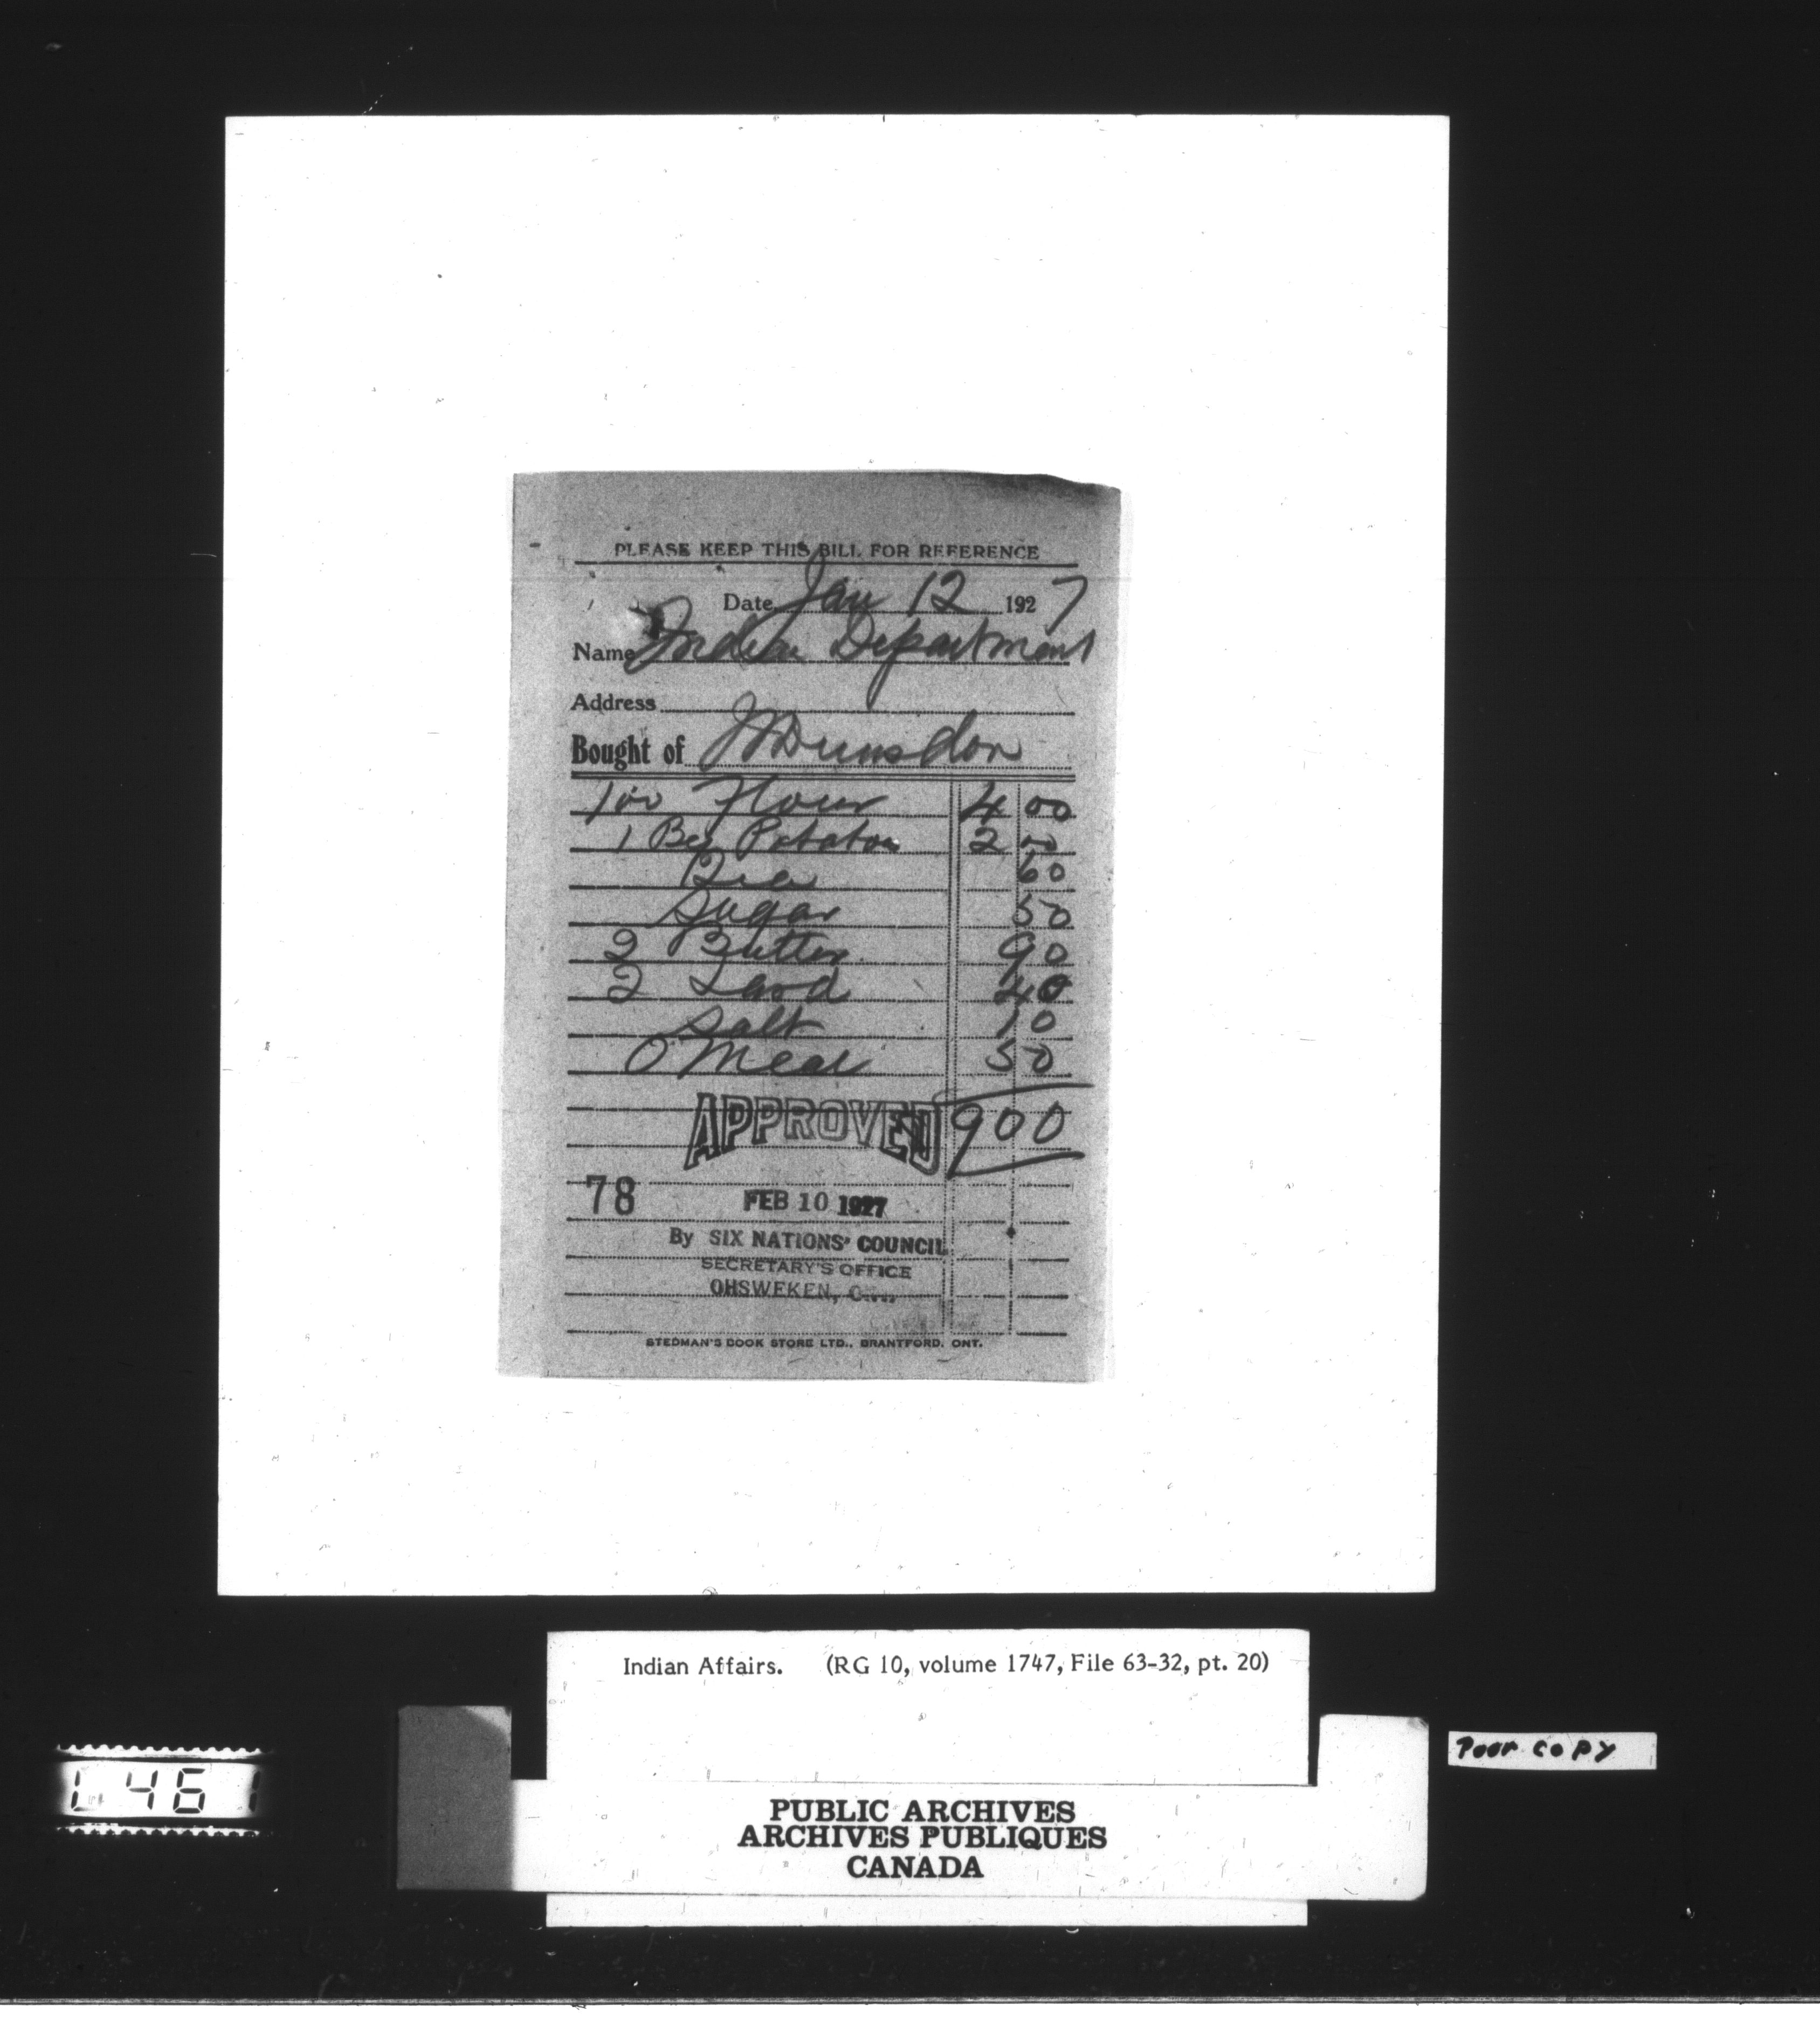 PLEASE KEEP THIS BILL FOR REFERENCE
Date Jan 12 1927
Name Indian Department
Address
Bought of J W Dunsdon
100 Flour 4 00
1 Bag Potatoes 2 00
Tea 60
Sugar 50
2 Butter 90
2 Lard 40
Salt 10
O Meal 50
APPROVED 9 00
78 FEB 10 1927
By SIX NATIONS' COUNCIL
SECRETARY'S OFFICE
OHSWEKEN,
STEDMAN'S BOOK STORE LTD., BRANTFORD, ONT.
Indian Affairs. (RG 10, volume 1747, File 63-32, pt. 20)
Poor copy
L 461
PUBLIC ARCHIVES
ARCHIVES PUBLIQUES
CANADA